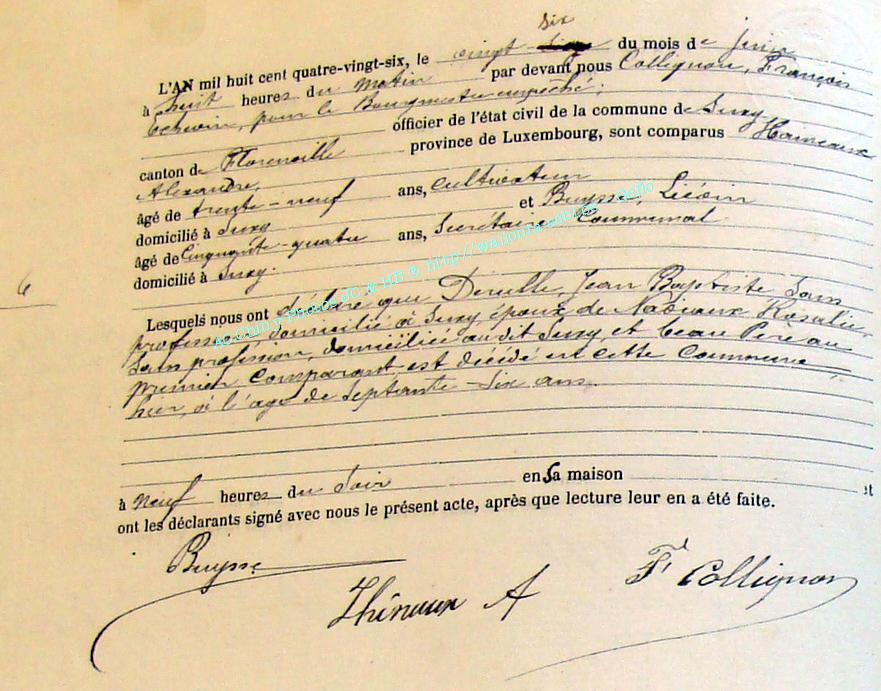 six
L'AN mil huit cent quatre-vingt-six, le vingt du mois de juin
à huit heures du matin par devant nous Collignon, François
Echevin, pour le Bourgmestre empêché;
officier de l'état civil de la commune de Suxy
canton de Florenville province de Luxembourg, sont comparus
Alexandre,
âgé de trente-neuf ans, cultivateur
domicilié à Suxy et Buysse,
âgé de Cinquante-quatre ans, Secrétaire Communal
domicilié à Suxy.
6
Lesquels nous ont déclaré que Jean Baptiste Sans
profession, domicilié à Suxy, époux de Rosalie,
Sans profession, domiciliée audit Suxy, et beau Père au
premier Comparant est décédé en cette Commune,
hier, à l'age de Septante-six ans.
à neuf heures du soir en sa maison et
ont les déclarants signé avec nous le présent acte, après que lecture leur en a été faite.
Buysse
A F Collignon